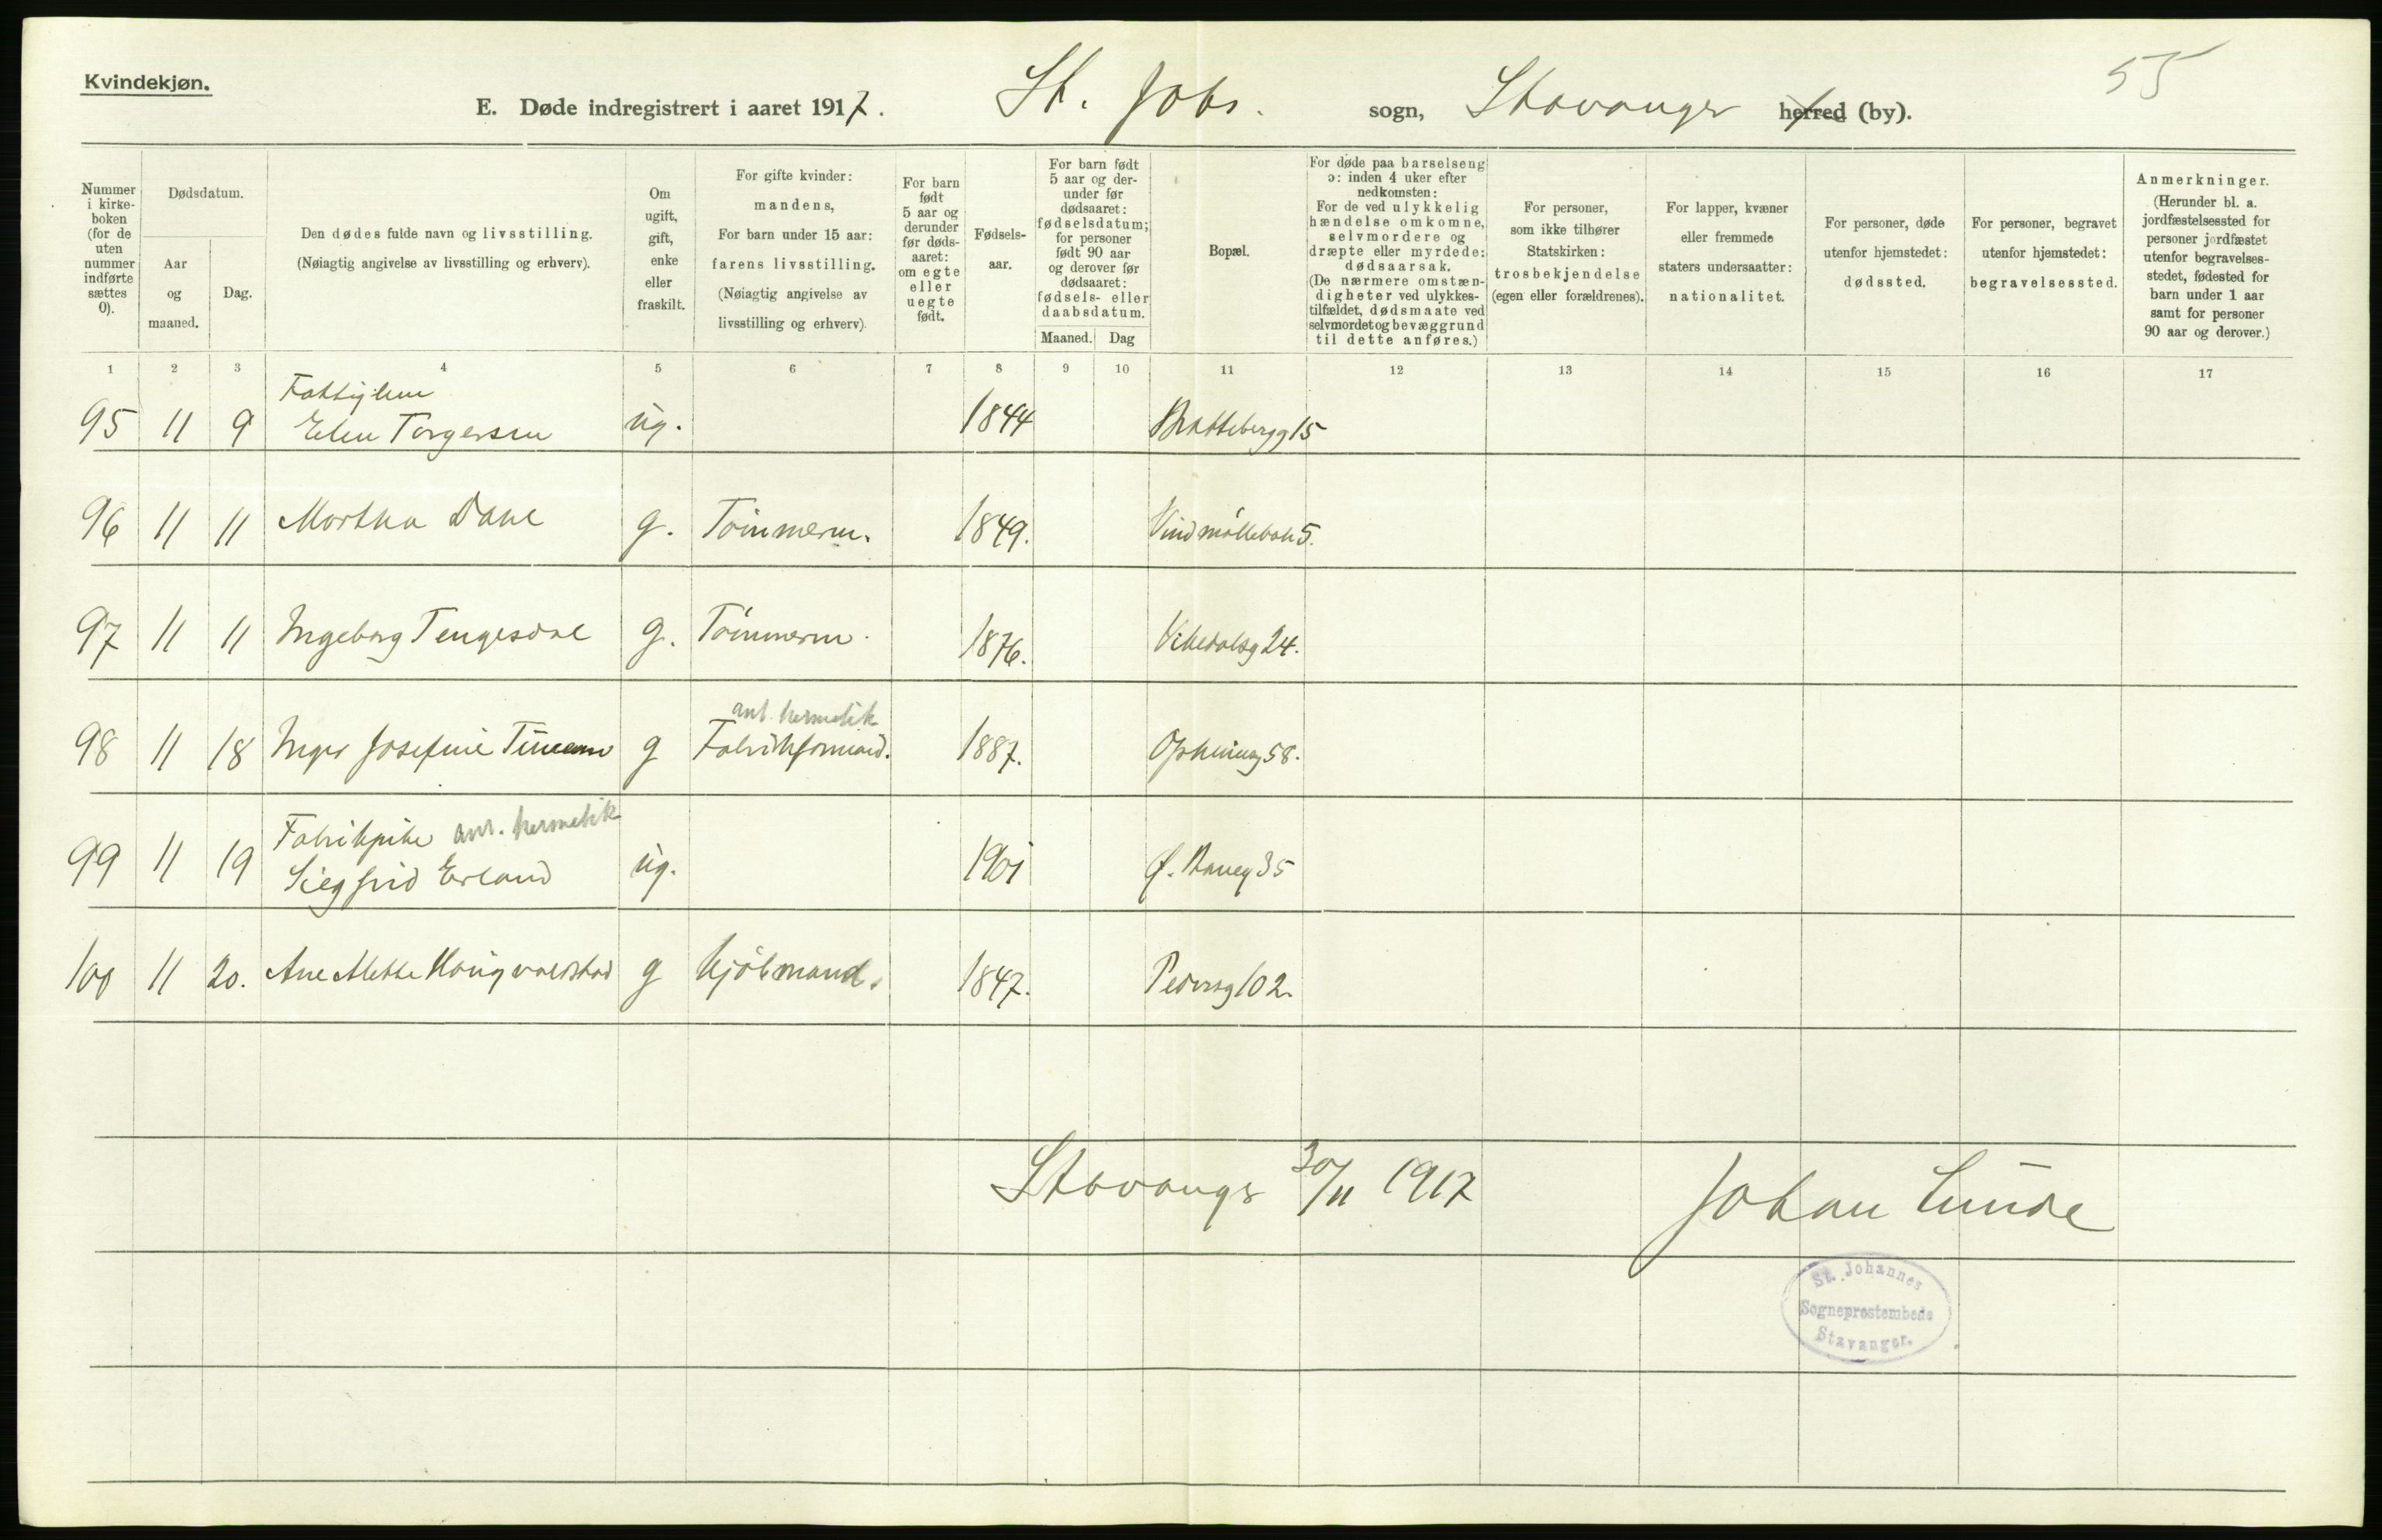 Kvindekjøn.
55
E. Døde indregistrert i aaret 1917. St. Johs. sogn, Stavanger herred (by).
Nummer i kirke-boken (for de uten nummer indførte sættes 0).
Dødsdatum.
Aar og maaned.
Dag.
Den dødes fulde navn og livsstilling.
(Nøiagtig angivelse av livsstilling og erhverv).
Om ugift, gift, enke eller fraskilt.
For gifte kvinder:
mandens,
For barn under 15 aar:
farens livsstilling.
(Nøiagtig angivelse av
livsstilling og erhverv).
For barn født 5 aar og derunder før døds-aaret: om egte eller uegte født.
Fødsels-aar.
For barn født 5 aar og der-under før dødsaaret: fødselsdatum; for personer født 90 aar og derover før dødsaaret: fødsels- eller daabsdatum.
Maaned. Dag
Bopæl.
For døde paa barselseng ɔ: inden 4 uker efter nedkomsten:
For de ved ulykkelig hændelse omkomne, selvmordere og dræpte eller myrdede: dødsaarsak.
(De nærmere omstæn-digheter ved ulykkes-tilfældet, dødsmaate ved selvmordet og bevæggrund til dette anføres.)
For personer, som ikke tilhører Statskirken: trosbekjendelse (egen eller forældrenes).
For lapper, kvæner eller fremmede staters undersaatter: nationalitet.
For personer, døde utenfor hjemstedet: dødssted.
For personer, begravet utenfor hjemstedet: begravelsessted.
Anmerkninger.
(Herunder bl. a. jordfæstelsessted for personer jordfæstet utenfor begravelses-stedet, fødested for barn under 1 aar samt for personer 90 aar og derover.)
1 2 3 4 5 6 7 8 9 10 11 12 13 14 15 16 17
Fattiglem
95 11 9 Elen Torgersen ug. 1844 Brattebergg 15
96 11 11 Martha Dahl g. Tömmerm. 1849. Vindmöllebak 5.
97 11 11 Ingeborg Tengesdal g. Tömmerm. 1876. Vikedalsg 24.
ant. hermetik
98 11 18 Inger Josefine g Fabrikformand. 1887. 58.
Fabrikpike ant. hermetik
99 11 19 Siegfrid Erland ug. 1901 Ø. Baneg 35
100 11 20. Ane Mette g kjölmand. 1847. Pedersg 102.
Stavanger 30/11 1917 Johan Lunde
St. Johannes
Sogneprestembede
Stavanger.